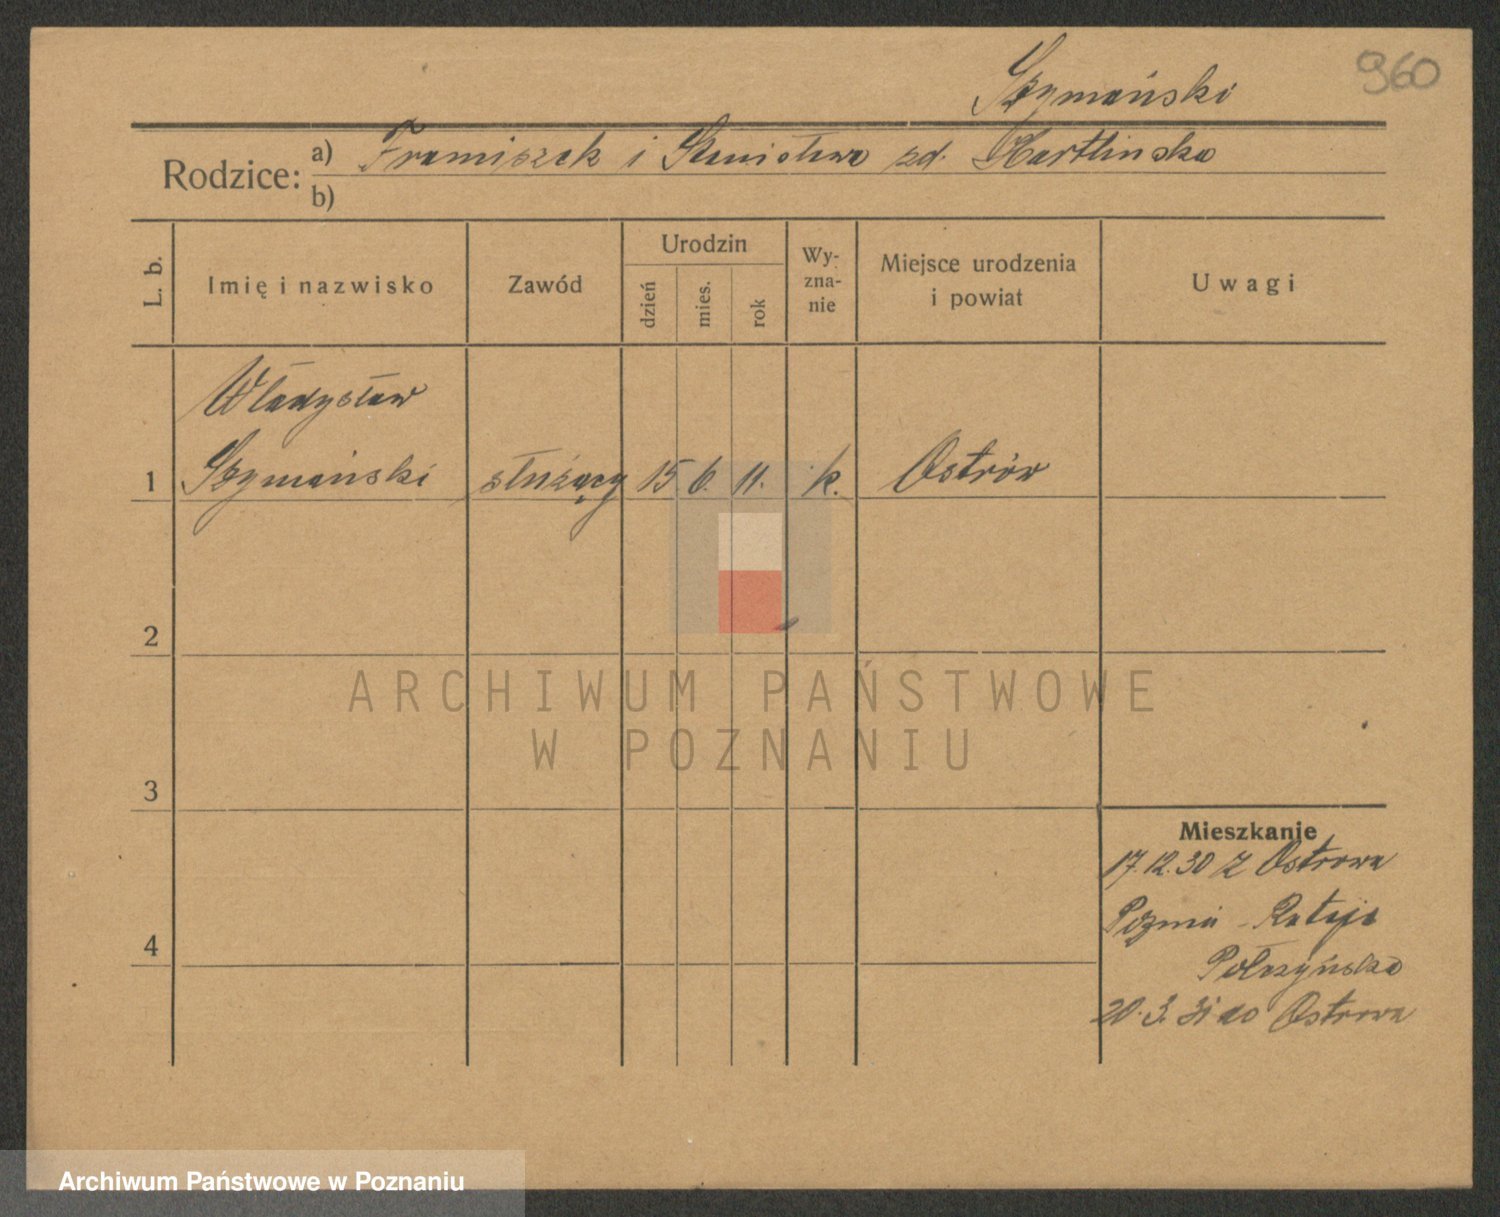 960
Szymański
Rodzice: a) Franciszek i Stanisława zd. Martlinska
b)
L. b.
Imię i nazwisko
Zawód
Urodzin
dzień
mies.
rok
Wy-
zna-
nie
Miejsce urodzenia
i powiat
Uwagi
Władysław
1 Szymański służący 15 6. 11. k. Ostrów
2
3
4
Mieszkanie
17.12.30 z Ostrowa
Poznań - Rataje
20.3.31 do Ostrowa
ARCHIWUM PAŃSTWOWE
W POZNANIU
Archiwum Państwowe w Poznaniu